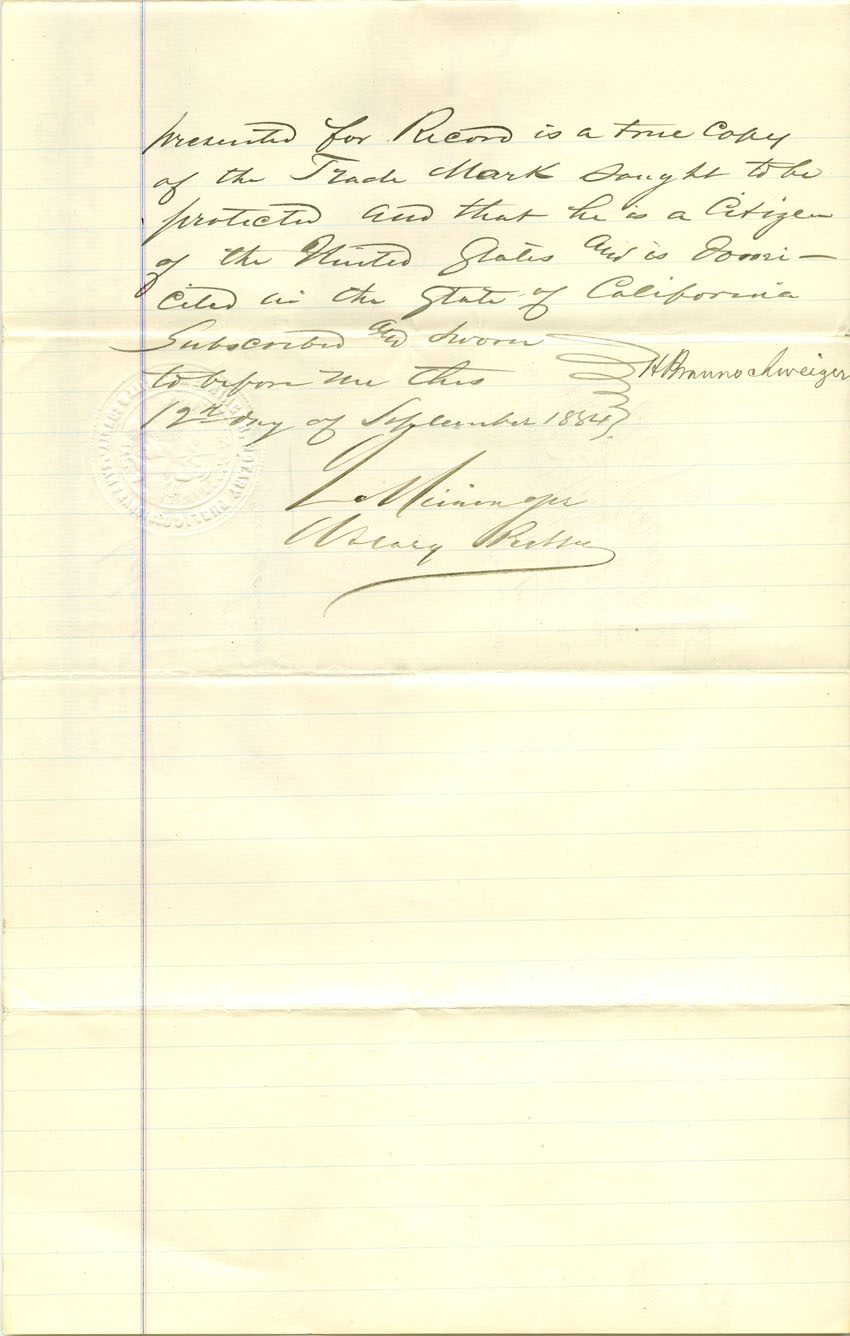 presented for Record is a true Copy
of the Trade Mark sought to be
protected and that he is a Citizen
of the United States and is Domi-
ciled in the State of California
Subscribed and Sworn
to before me this
H Braunschweiger
12th day of September 1884
Notary Public
NOTARY PUBLIC